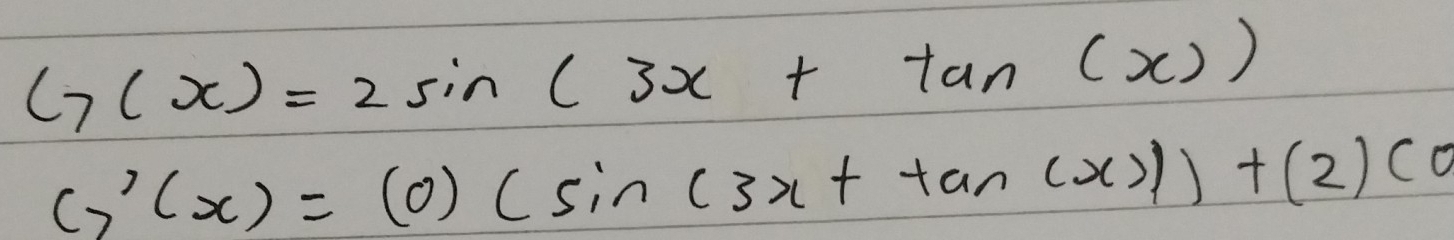 G(x) = 2 sin ( 3x + tan (x))
G'(x) = (0) ( sin (3x + tan (x))) + (2) (